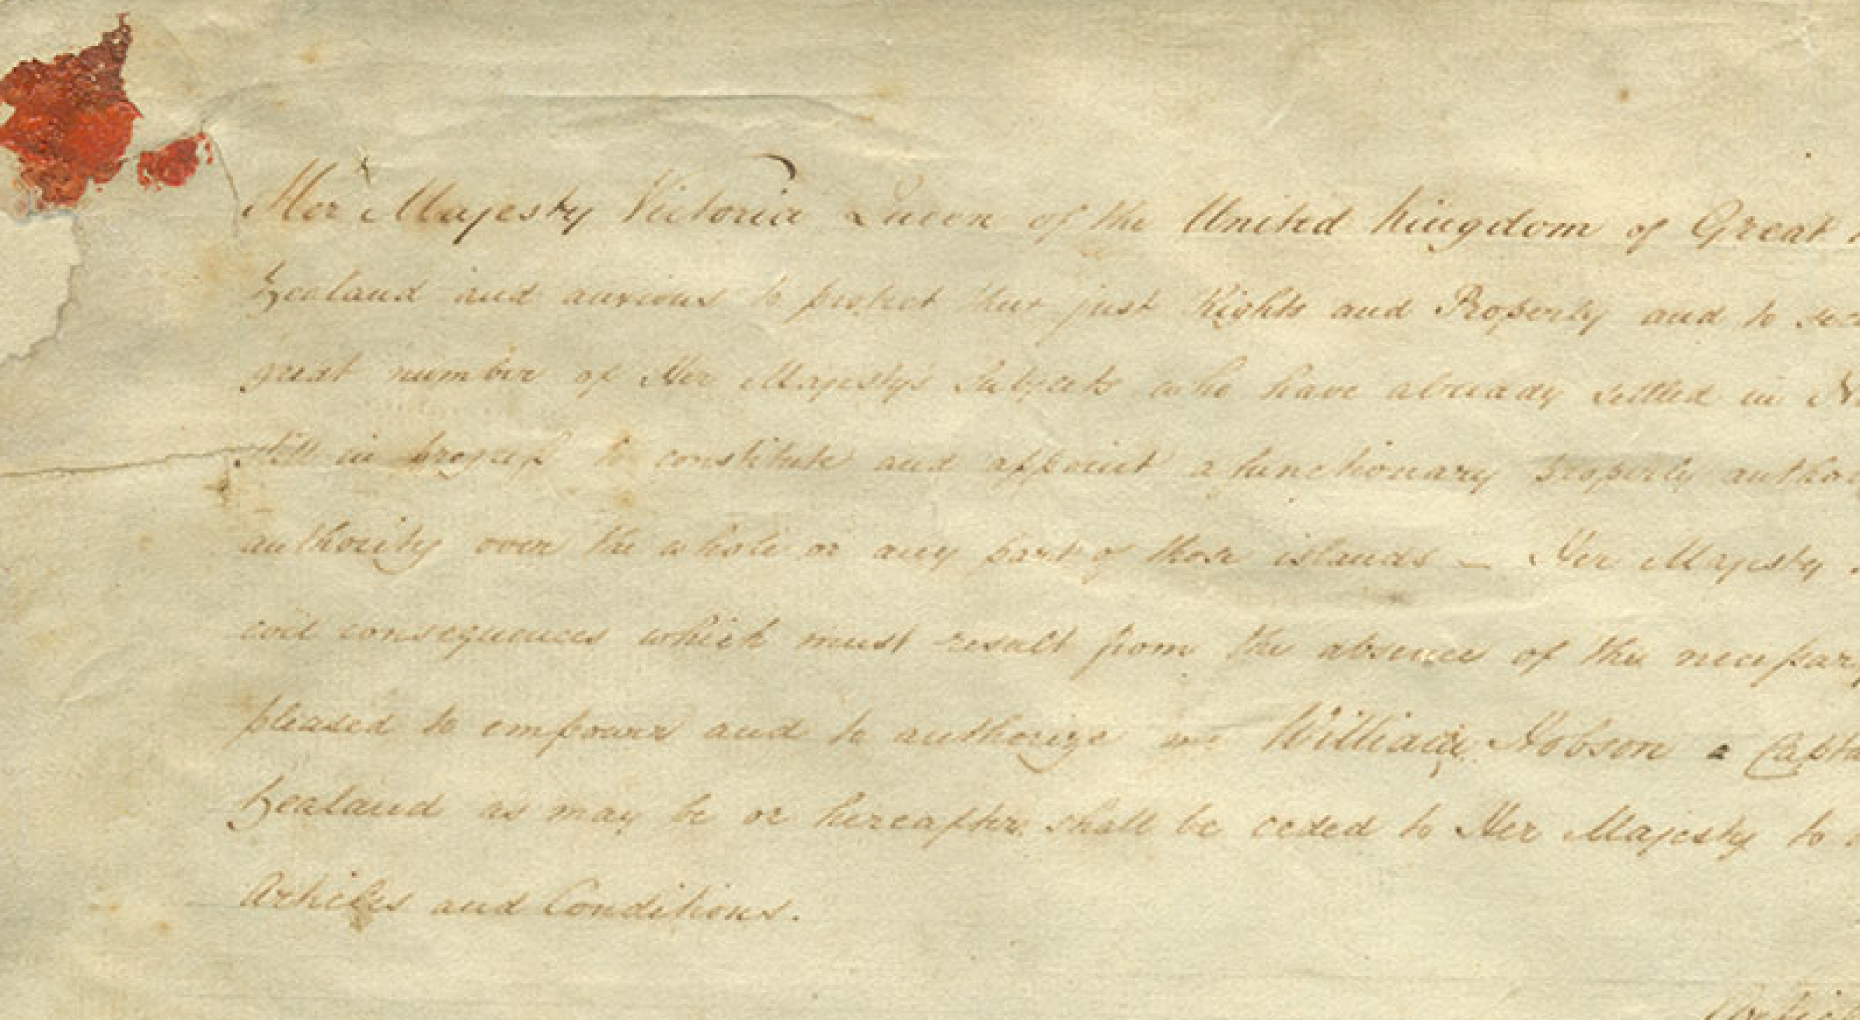 Her Majesty Victoria Queen of the United Kingdom of Great
Zealand and anxious to protect their just Rights and Property and to sec
great number of Her Majesty's Subjects who have already settled in N
still in progress to constitute and appoint a functionary properly author
authority over the whole or any part of those islands – Her Majesty
evil consequences which must result from the absence of the necessary
pleased to empower and to authorize me William Hobson a Capta
Zealand as may be or hereafter shall be ceded to Her Majesty to
Articles and Conditions.